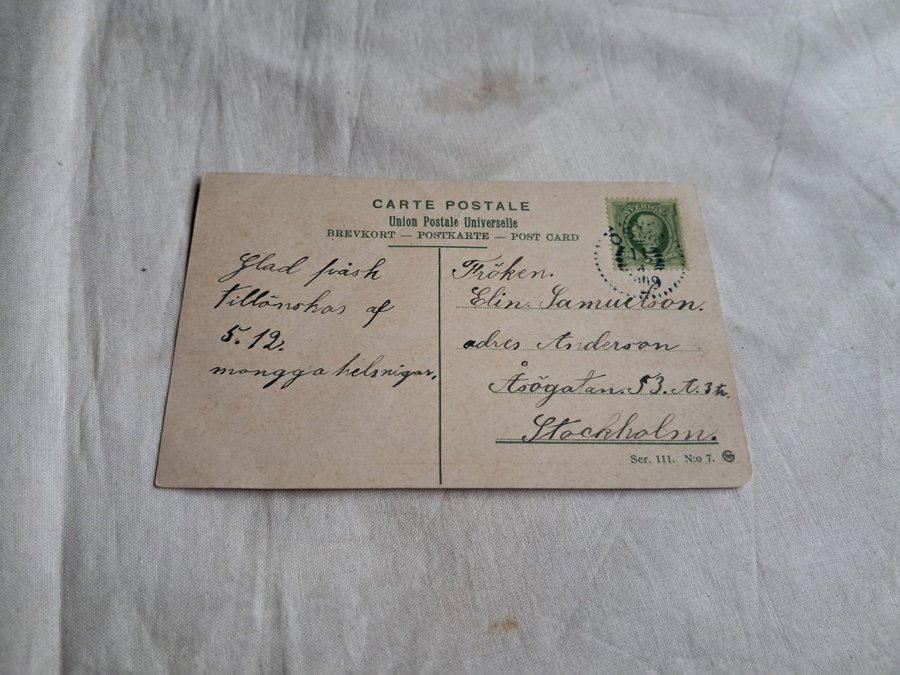 CARTE POSTALE
Union Postale Universelle
BREVKORT — POSTKARTE — POST CARD
Glad påsk
tillönskas af
5.12.
mongga helsnigar,
Fröken.
Elin. Samuelson.
adres Anderson
Åsögatan. 53. A. 3 tr.
Stockholm.
Ser. 111. N:o 7.